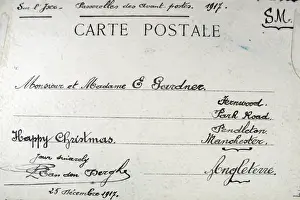 Sur l'Yser. Passerelles des avant postes. 1917.
S.M.
CARTE POSTALE
Monsieur et Madame E Gardner.
Fernwood.
Park Road.
Pendleton.
Happy Christmas.
Manchester.
Your sincerely
Angleterre.
Van den Berghe
25 Décembre 1917.